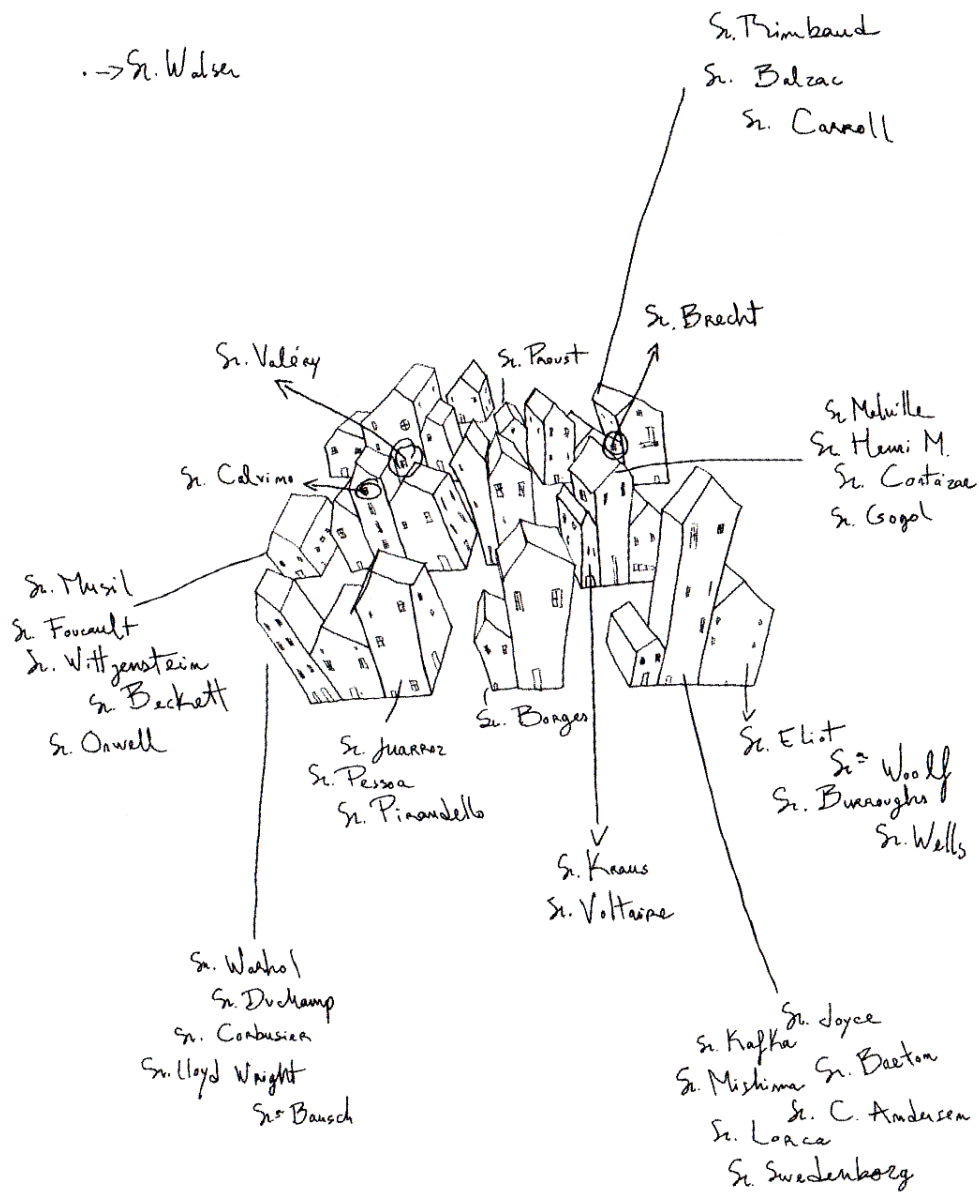 Sr. Walser
Sr. Rimbaud
Sr. Balzac
Sr. Carroll
Sr. Brecht
Sr. Valéry
Sr. Proust
Sr. Calvino
Sr Melville
Sr. Henri M.
Sr. Cortázar
Sr. Gogol
Sr. Musil
Sr. Foucault
Sr. Wittgenstein
Sr. Beckett
Sr. Orwell
Sr. Juarroz
Sr. Pessoa
Sr. Pirandello
Sr. Borges
Sr. Eliot
Srª Woolf
Sr. Burroughs
Sr. Wells
Sr. Kraus
Sr. Voltaire
Sr. Warhol
Sr. Duchamp
Sr. Corbusier
Sr. Lloyd Wright
Srª Bausch
Sr. Joyce
Sr. Kafka
Sr. Mishima
Sr. Breton
Sr. C. Andersen
Sr. Lorca
Sr. Swedenborg